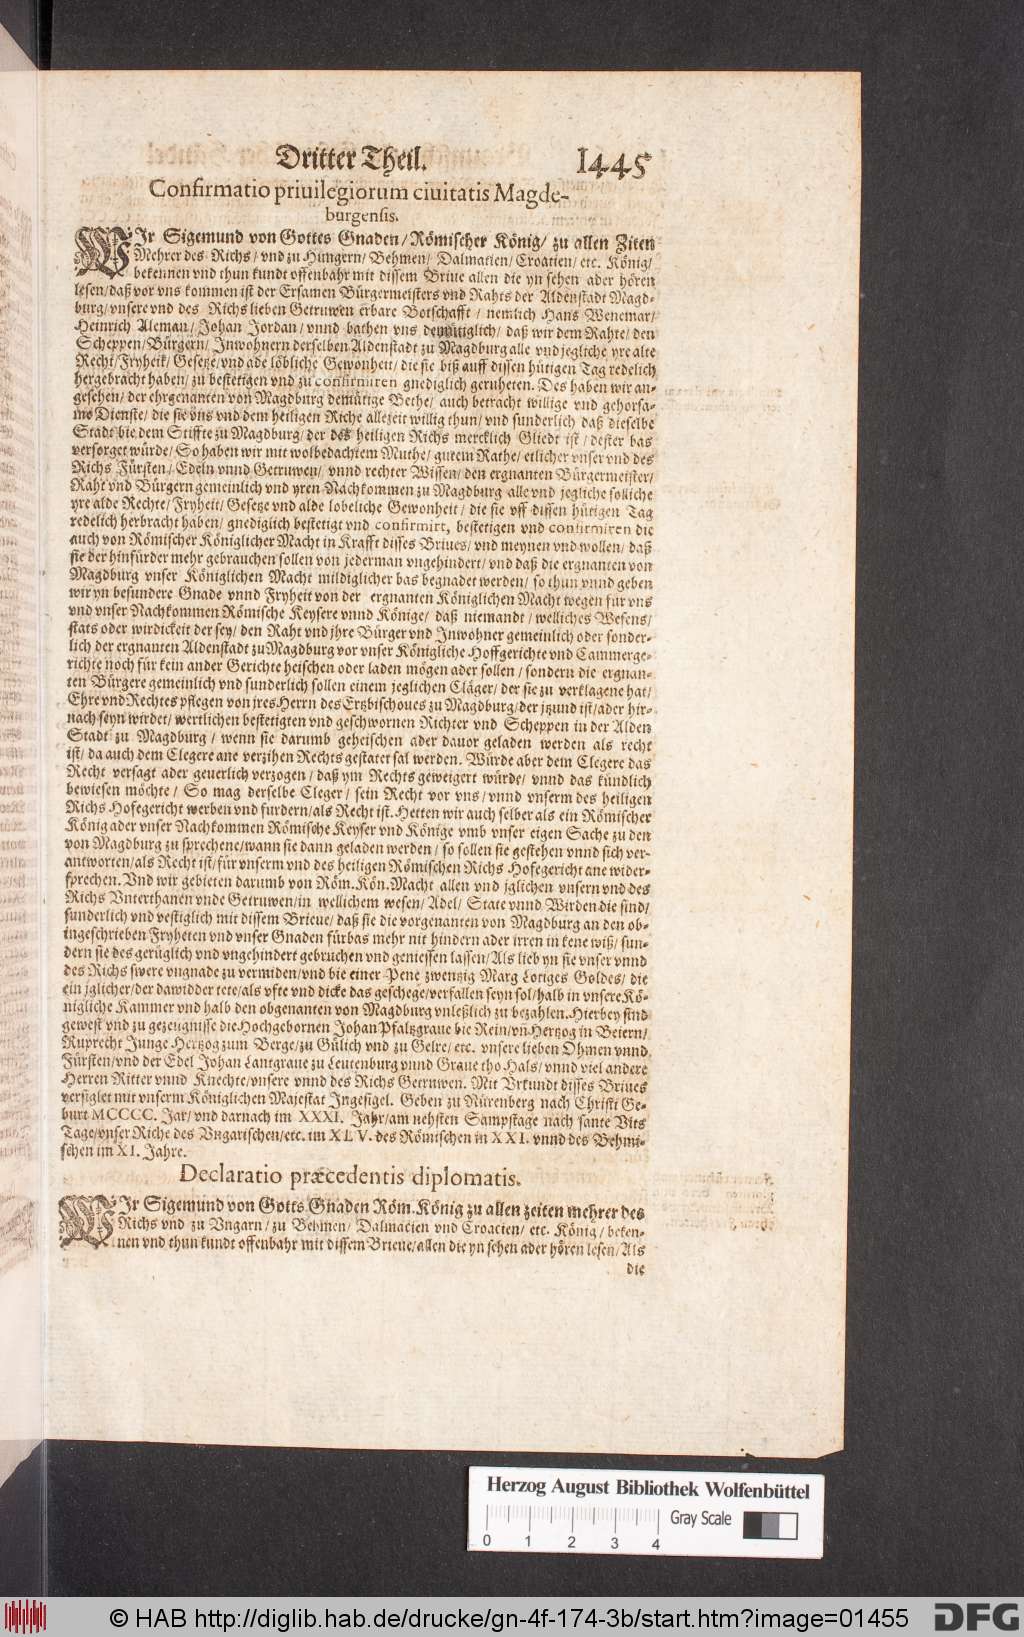 Dritter Theil. 1445
Confirmatio priuilegiorum ciuitatis Magde-
burgensis.
WIr Sigemund von Gottes Gnaden/ Römischer König/ zu allen Ziten
Mehrer des Richs/ vnd zu Hungern/ Behmen/ Dalmatien/ Croatien/ etc. König/
bekennen vnd thun kundt offenbahr mit dissem Briue allen die yn sehen ader hören
lesen/ daß vor vns kommen ist der Ersamen Bürgermeisters vnd Rahts der Aldenstadt Magd-
burg/ vnsere vnd des Richs lieben Getruwen erbare Botschafft / nemlich Hans Wenemar/
Heinrich Aleman/ Johan Jordan/ vnnd bathen vns demütiglich/ daß wir dem Rahte/ den
Scheppen/ Bürgern/ Inwohnern derselben Aldenstadt zu Magdburg alle vnd jegliche yre alte
Recht/ Fryheit/ Gesetze/ vnd alde löbliche Gewonheit/ die sie biß auff dissen hütigen Tag redelich
hergebracht haben/ zu bestetigen vnd zu confirmiren gnediglich geruheten. Des haben wir an-
gesehen/ der ehrgenanten von Magdburg demütige Bethe/ auch betracht willige vnd gehorsa-
me Dienste/ die sie vns vnd dem heiligen Riche allezeit willig thun/ vnd sunderlich daß dieselbe
Stadt bie dem Stiffte zu Magdburg/ der des heiligen Richs mercklich Gliedt ist / dester bas
versorget würde/ So haben wir mit wolbedachtem Muthe/ gutem Rathe/ etlicher vnser vnd des
Richs Fürsten/ Edeln vnnd Getruwen/ vnnd rechter Wissen/ den ergnanten Bürgermeister/
Raht vnd Bürgern gemeinlich vnd yren Nachkommen zu Magdburg alle vnd jegliche solliche
yre alde Rechte/ Fryheit/ Gesetze vnd alde lobeliche Gewonheit / die sie vff dissen hütigen Tag
redelich herbracht haben/ gnediglich bestetigt vnd confirmirt, bestetigen vnd confirmiren die
auch von Römischer Königlicher Macht in Krafft disses Briues/ vnd meynen vnd wollen/ daß
sie der hinfürder mehr gebrauchen sollen von jederman vngehindert/ vnd daß die ergnanten von
Magdburg vnser Königlichen Macht mildiglicher bas begnadet werden/ so thun vnnd geben
wir yn besundere Gnade vnnd Fryheit von der ergnanten Königlichen Macht wegen fur vns
vnd vnser Nachkommen Römische Keysere vnnd Könige/ daß niemandt / welliches Wesens/
stats oder wirdickeit der sey/ den Raht vnd jhre Bürger vnd Inwohner gemeinlich oder sonder-
lich der ergnanten Aldenstadt zu Magdburg vor vnser Königliche Hoffgerichte vnd Cammerge-
richte noch für kein ander Gerichte heischen oder laden mögen ader sollen / sondern die ergnan-
ten Bürgere gemeinlich vnd sunderlich sollen einem jeglichen Cläger/ der sie zu verklagene hat/
Ehre vnd Rechtes pflegen von jres Herrn des Ertzbischoues zu Magdburg/ der jtzund ist/ ader hir-
nach seyn wirdet/ wertlichen bestetigten vnd geschwornen Richter vnd Scheppen in der Alden
Stadt zu Magdburg / wenn sie darumb geheischen ader dauor geladen werden als recht
ist/ da auch dem Clegere ane verzihen Rechts gestatet sal werden. Würde aber dem Clegere das
Recht versagt ader geuerlich verzogen / daß ym Rechts geweigert würde/ vnnd das kündlich
bewiesen möchte/ So mag derselbe Cleger / sein Recht vor vns / vnnd vnserm des heiligen
Richs Hofegericht werben vnd furdern/ als Recht ist. Hetten wir auch selber als ein Römischer
König ader vnser Nachkommen Römische Keyser vnd Könige vmb vnser eigen Sache zu den
von Magdburg zu sprechene/ wann sie dann geladen werden / so sollen sie gestehen vnnd sich ver-
antworten/ als Recht ist/ für vnserm vnd des heiligen Römischen Richs Hofegericht ane wider-
sprechen. Vnd wir gebieten darumb von Röm. Kön. Macht allen vnd jglichen vnsern vnd des
Richs Vnterthanen vnde Getruwen/ in wellichem wesen/ Adel/ State vnnd Wirden die sind/
sunderlich vnd vestiglich mit dissem Brieue/ daß sie die vorgenanten von Magdburg an den ob-
ingeschrieben Fryheten vnd vnser Gnaden fürbas mehr nit hindern ader irren in kene wiß/ sun-
dern sie des gerüglich vnd vngehindert gebruchen vnd geniessen lassen/ Als lieb yn sie vnser vnnd
des Richs swere vngnade zu vermiden/ vnd bie einer Pene zwentzig Marg Lotiges Goldes/ die
ein jglicher/ der dawidder tete/ als ofte vnd dicke das geschege/ verfallen seyn sol/ halb in vnsere Kö-
nigliche Kammer vnd halb den obgenanten von Magdburg vnleßlich zu bezahlen. Hierbey sind
gewest vnd zu gezeugnisse die Hochgebornen Johan Pfaltzgraue bie Rein/ vn̄ Hertzog in Beiern/
Ruprecht Junge Hertzog zum Berge/ zu Gülich vnd zu Gelre/ etc. vnsere lieben Ohmen vnnd
Fürsten/ vnd der Edel Johan Lantgraue zu Leutenburg vnnd Graue tho Hals/ vnnd viel andere
Herren Ritter vnnd Knechte/ vnsere vnnd des Richs Getruwen. Mit Vrkundt disses Briues
versiglet mit vnserm Königlichen Majestat Ingesigel. Geben zu Nürenberg nach Christi Ge-
burt MCCCC. Jar/ vnd darnach im XXXI. Jahr/ am nehsten Sampstage nach sante Vits
Tage/ vnser Riche des Vngarischen/ etc. im XLV. des Römischen in XXI. vnnd des Behmi-
schen im XI. Jahre.
Declaratio præcedentis diplomatis.
WIr Sigemund von Gotts Gnaden Röm. König zu allen zeiten mehrer des
Richs vnd zu Vngarn/ zu Behmen/ Dalmatien vnd Croacien/ etc. König/ beken-
nen vnd thun kundt offenbahr mit dissem Brieue/ allen die yn sehen ader hören lesen/ Als
die
Herzog August Bibliothek Wolfenbüttel
Gray Scale
0 1 2 3 4
© HAB http://diglib.hab.de/drucke/gn-4f-174-3b/start.htm?image=01455 DFG